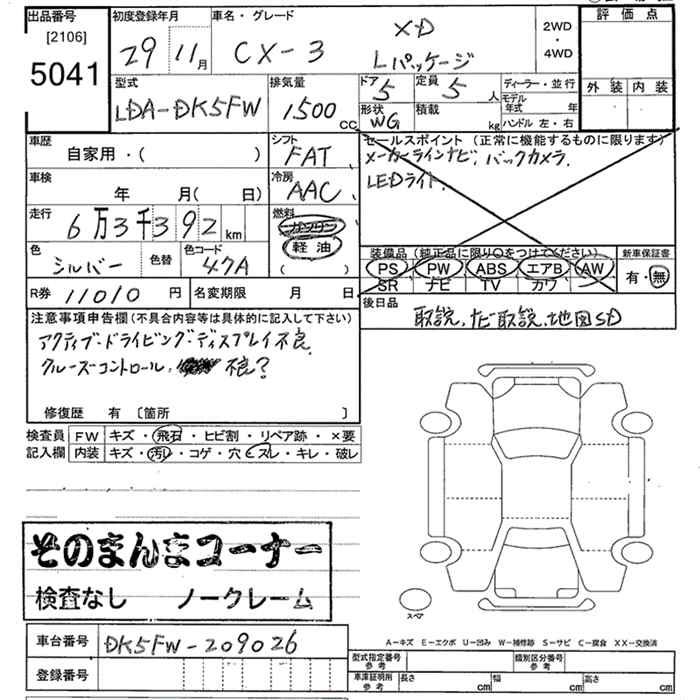 出品番号
[2106]
5041
初度登録年月
29 11月
車名・グレード
CX-3
XD
Lパッケージ
2WD
・
4WD
評価点
外装 内装
型式
LDA-DK5FW
排気量
1500 CC
ドア
5
定員
5 人
形状
WG
積載
kg
ディーラー・並行
モデル年式 年
ハンドル 左・右
車歴
自家用・( )
シフト
FAT
セールスポイント (正常に機能するものに限ります)
メーカーラインナビ、バックカメラ、
LEDライト
車検
年 月( 日)
冷房
AAC
走行
6万3千392km
燃料
ガソリン
軽油
( )
色
シルバー
色替
色コード
47A
装備品 (純正品に限り○をつけてください)
PS PW ABS エアB AW
SR ナビ TV カワ
新車保証書
有・無
R券
11010 円
名変期限 月 日
後日品
取説、ナビ取説、地図SD
注意事項申告欄(不具合内容等は具体的に記入して下さい)
アクティブ・ドライビング・ディスプレイ不良
クルーズコントロール、不良?
修復歴 有 〔箇所 〕
検査員
記入欄
FW キズ・飛石・ヒビ割・リペア跡・×要
内装 キズ・汚レ・コゲ・穴・スレ・キレ・破レ
そのまんまコーナー
検査なし ノークレーム
スペア
A-キズ E-エクボ U-凹み W-補修跡 S-サビ C-腐食 XX-交換済
車台番号
DK5FW-209026
登録番号
型式指定番号
参考
類別区分番号
参考
車庫証明用
参考
長さ cm 幅 cm 高さ cm